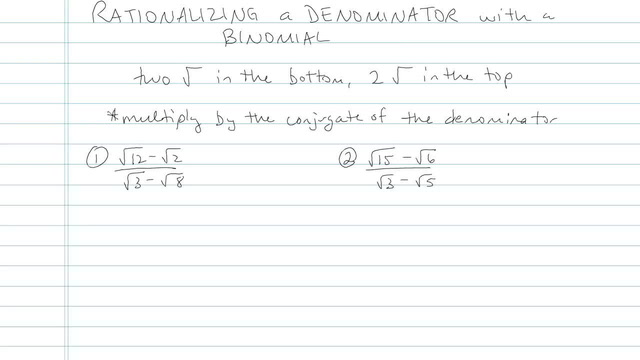 RATIONALIZING a DENOMINATOR with a
BINOMIAL
two √ in the bottom, 2 √ in the top
*multiply by the conjugate of the denominator
① (√12 - √2)/(√3 - √8) ② (√15 - √6)/(√3 - √5)